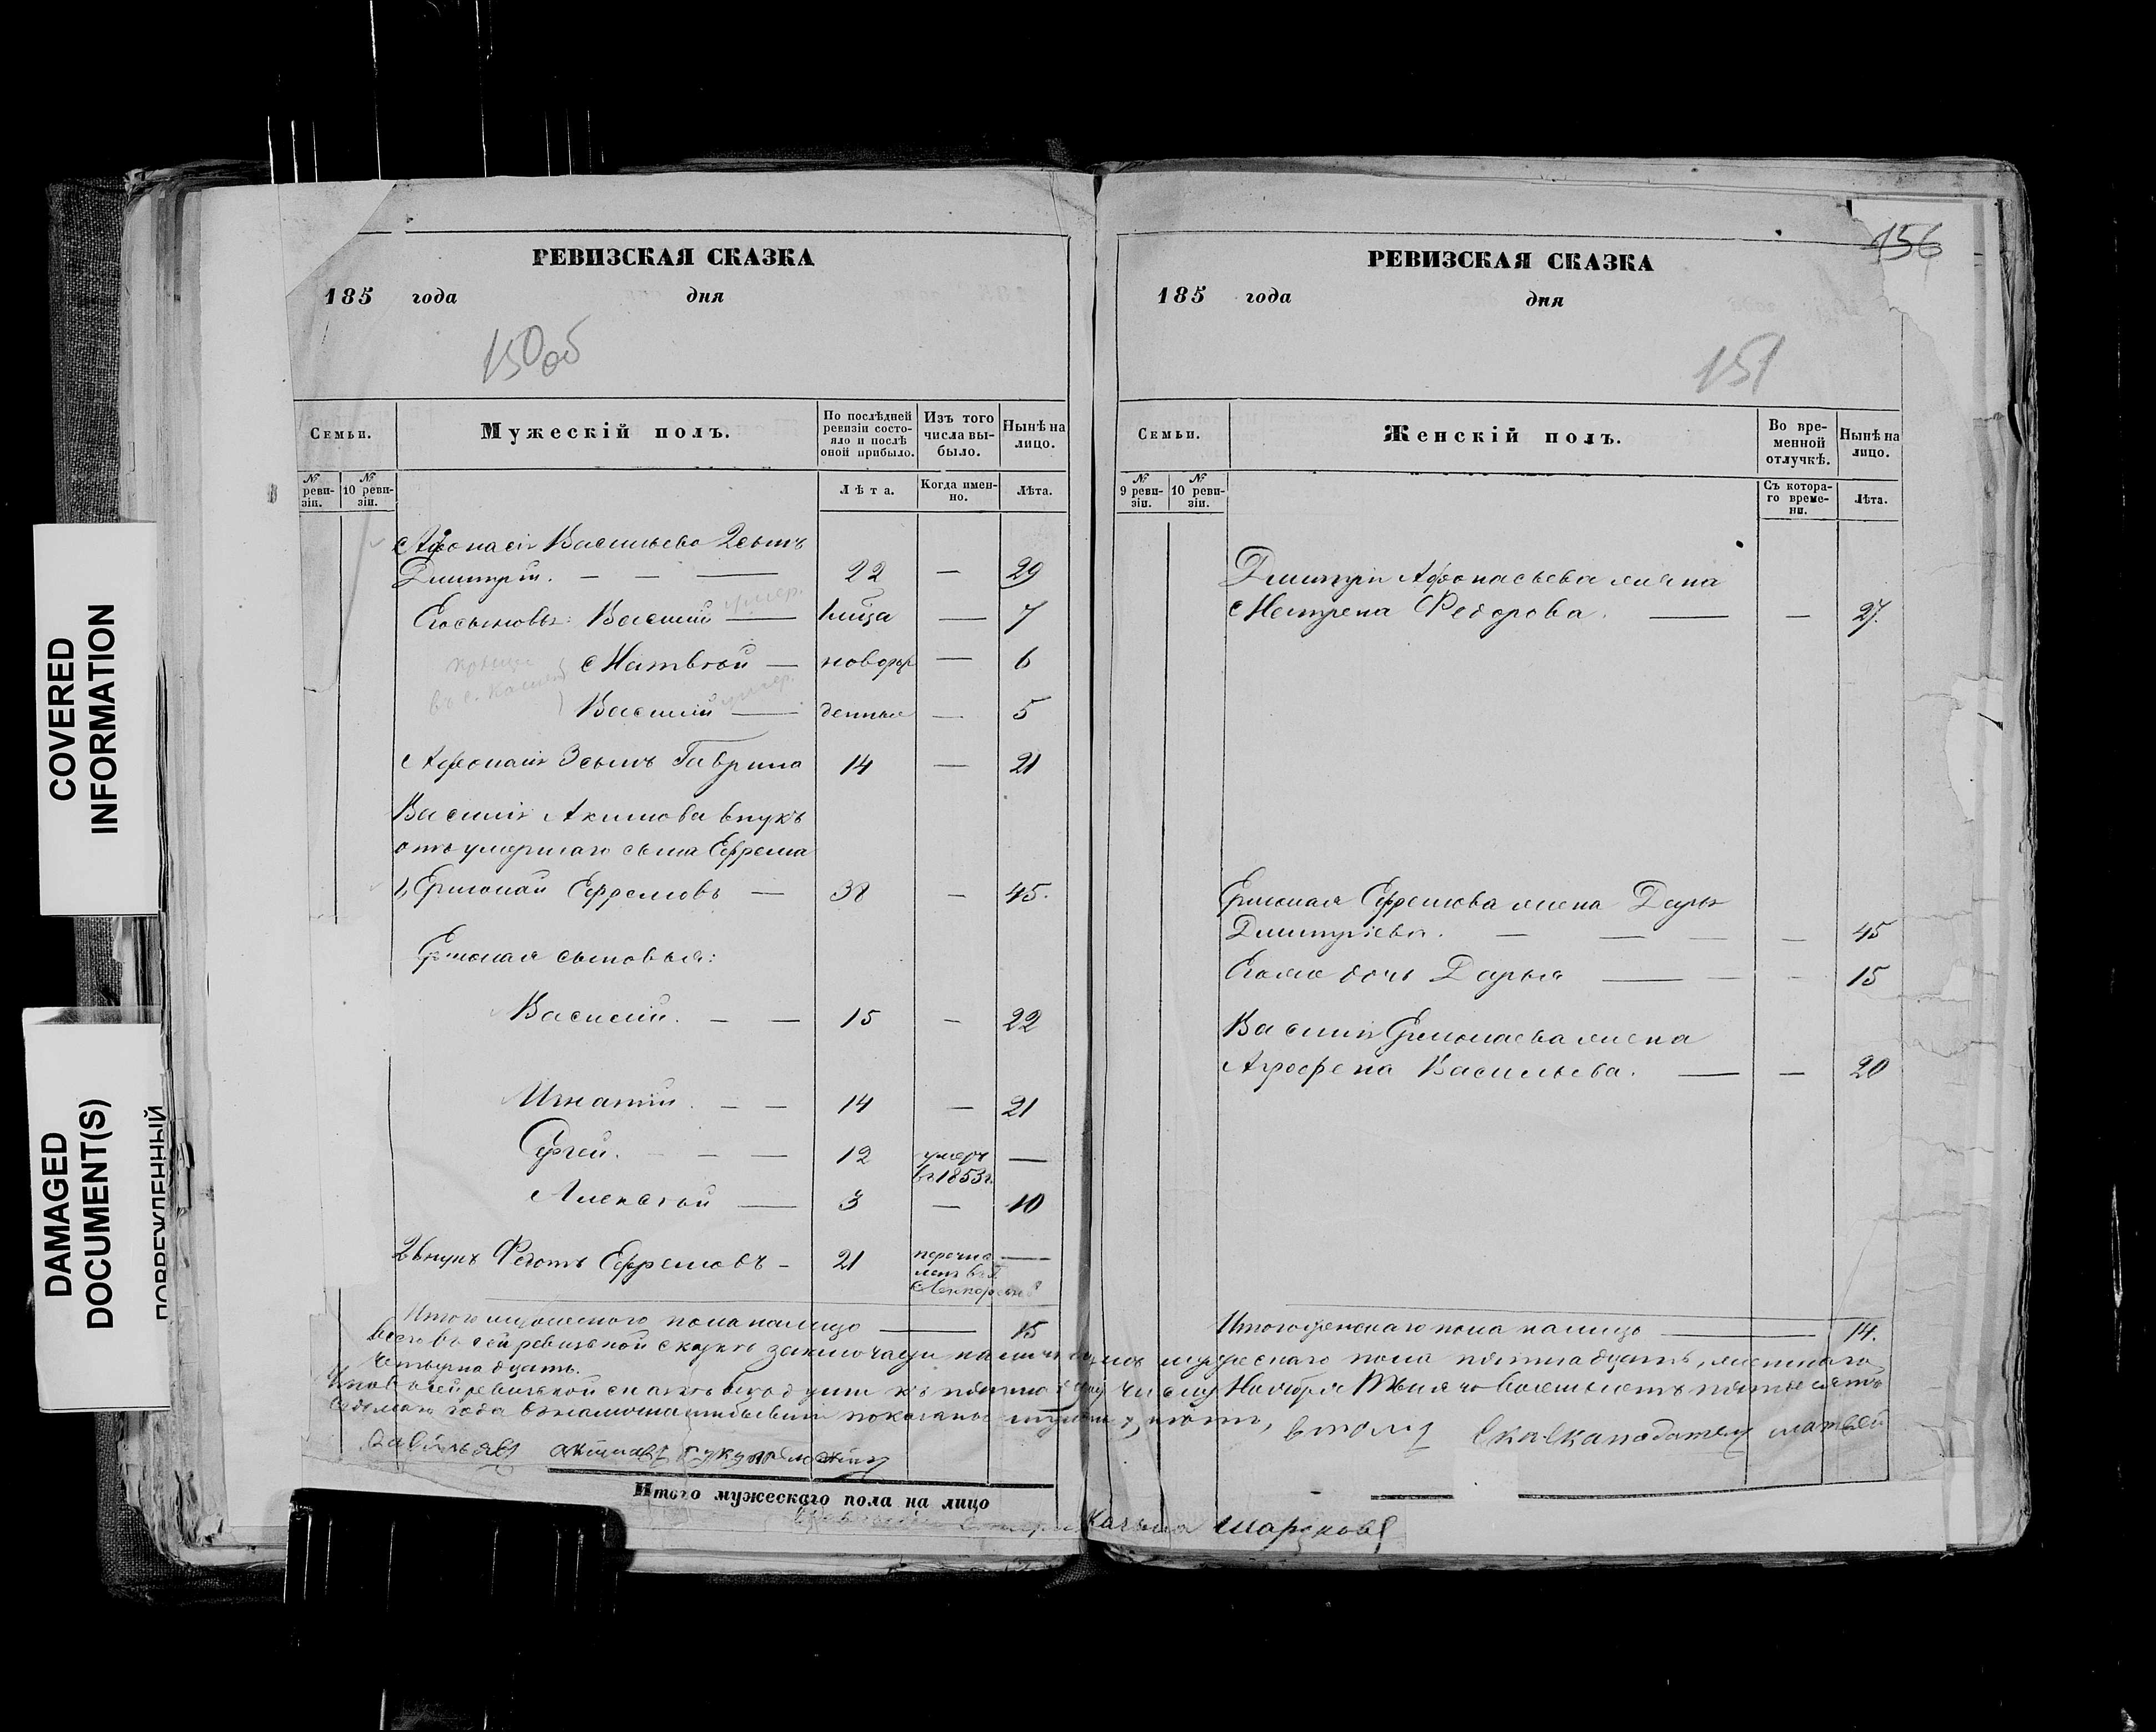 COVERED
INFORMATION
DAMAGED
DOCUMENT(S)
ПОВРЕЖДЕННЫЙ
РЕВИЗСКАЯ СКАЗКА
185 года дня
150об
Семьи.
Мужескій полъ.
По послѣдней ревизіи состо-
яло и послѣ
оной прибыло.
Изъ того
числа вы-
было.
Нынѣ на
лицо.
№
реви-
зіи.
№
10 реви-
зіи.
Лѣта.
Когда имен-
но.
Лѣта.
Афонасія Васильева 2 сынъ
Дмитрій. — — — 22 — 29
Егосыновья: Василій умер. — — 7
Матвѣй — новорож — 6
Василій умер. — денные — 5
Афонасія 3 сынъ Гаврила 14 — 21
Василія Акимова внукъ
отъ умершаго сына Ефрема
1, Ермолай Ефремовъ — 38 — 45.
Ермолая сыновья:
Василій. — — 15 — 22
Игнатій. — — 14 — 21
Сергей. — — — 12 умеръ —
въ 1853 г.
Алексѣй — 3 — 10
2 внукъ Федотъ Ефремовъ — 21 перечис —
ленъ въ
Итого мужескаго пола налицо — 15
Всего въ сей ревизской сказкѣ заключающи налицо мужескаго пола пятнадцать, женскаго
четырнадцать.
Что въ сей ревизской сказкѣ числу Ноября Тысяча восемьсотъ пятьдесятъ
седьмаго года показаны нѣтъ, втомъ Скаскаподатель матвей
савельявъ акимавъ руку
Итого мужескаго пола на лицо
РЕВИЗСКАЯ СКАЗКА
156
185 года дня
151
Семьи.
Женскій полъ.
Во вре-
менной
отлучкѣ.
Нынѣ на
лицо.
№
9 реви-
зіи.
№
10 реви-
зіи.
Съ котора-
го време-
ни.
Лѣта.
Дмитрія Афонасьева жена
Матрена Федорова. — — 27.
Ермолая Ефремова жена Дарья
Дмитріева. — — — — 45
Егоже дочь Дарья — — — 15
Василія Ермолаева жена
Аграфена Васильева. — — 20
Итого женскаго пола налицо — 14.